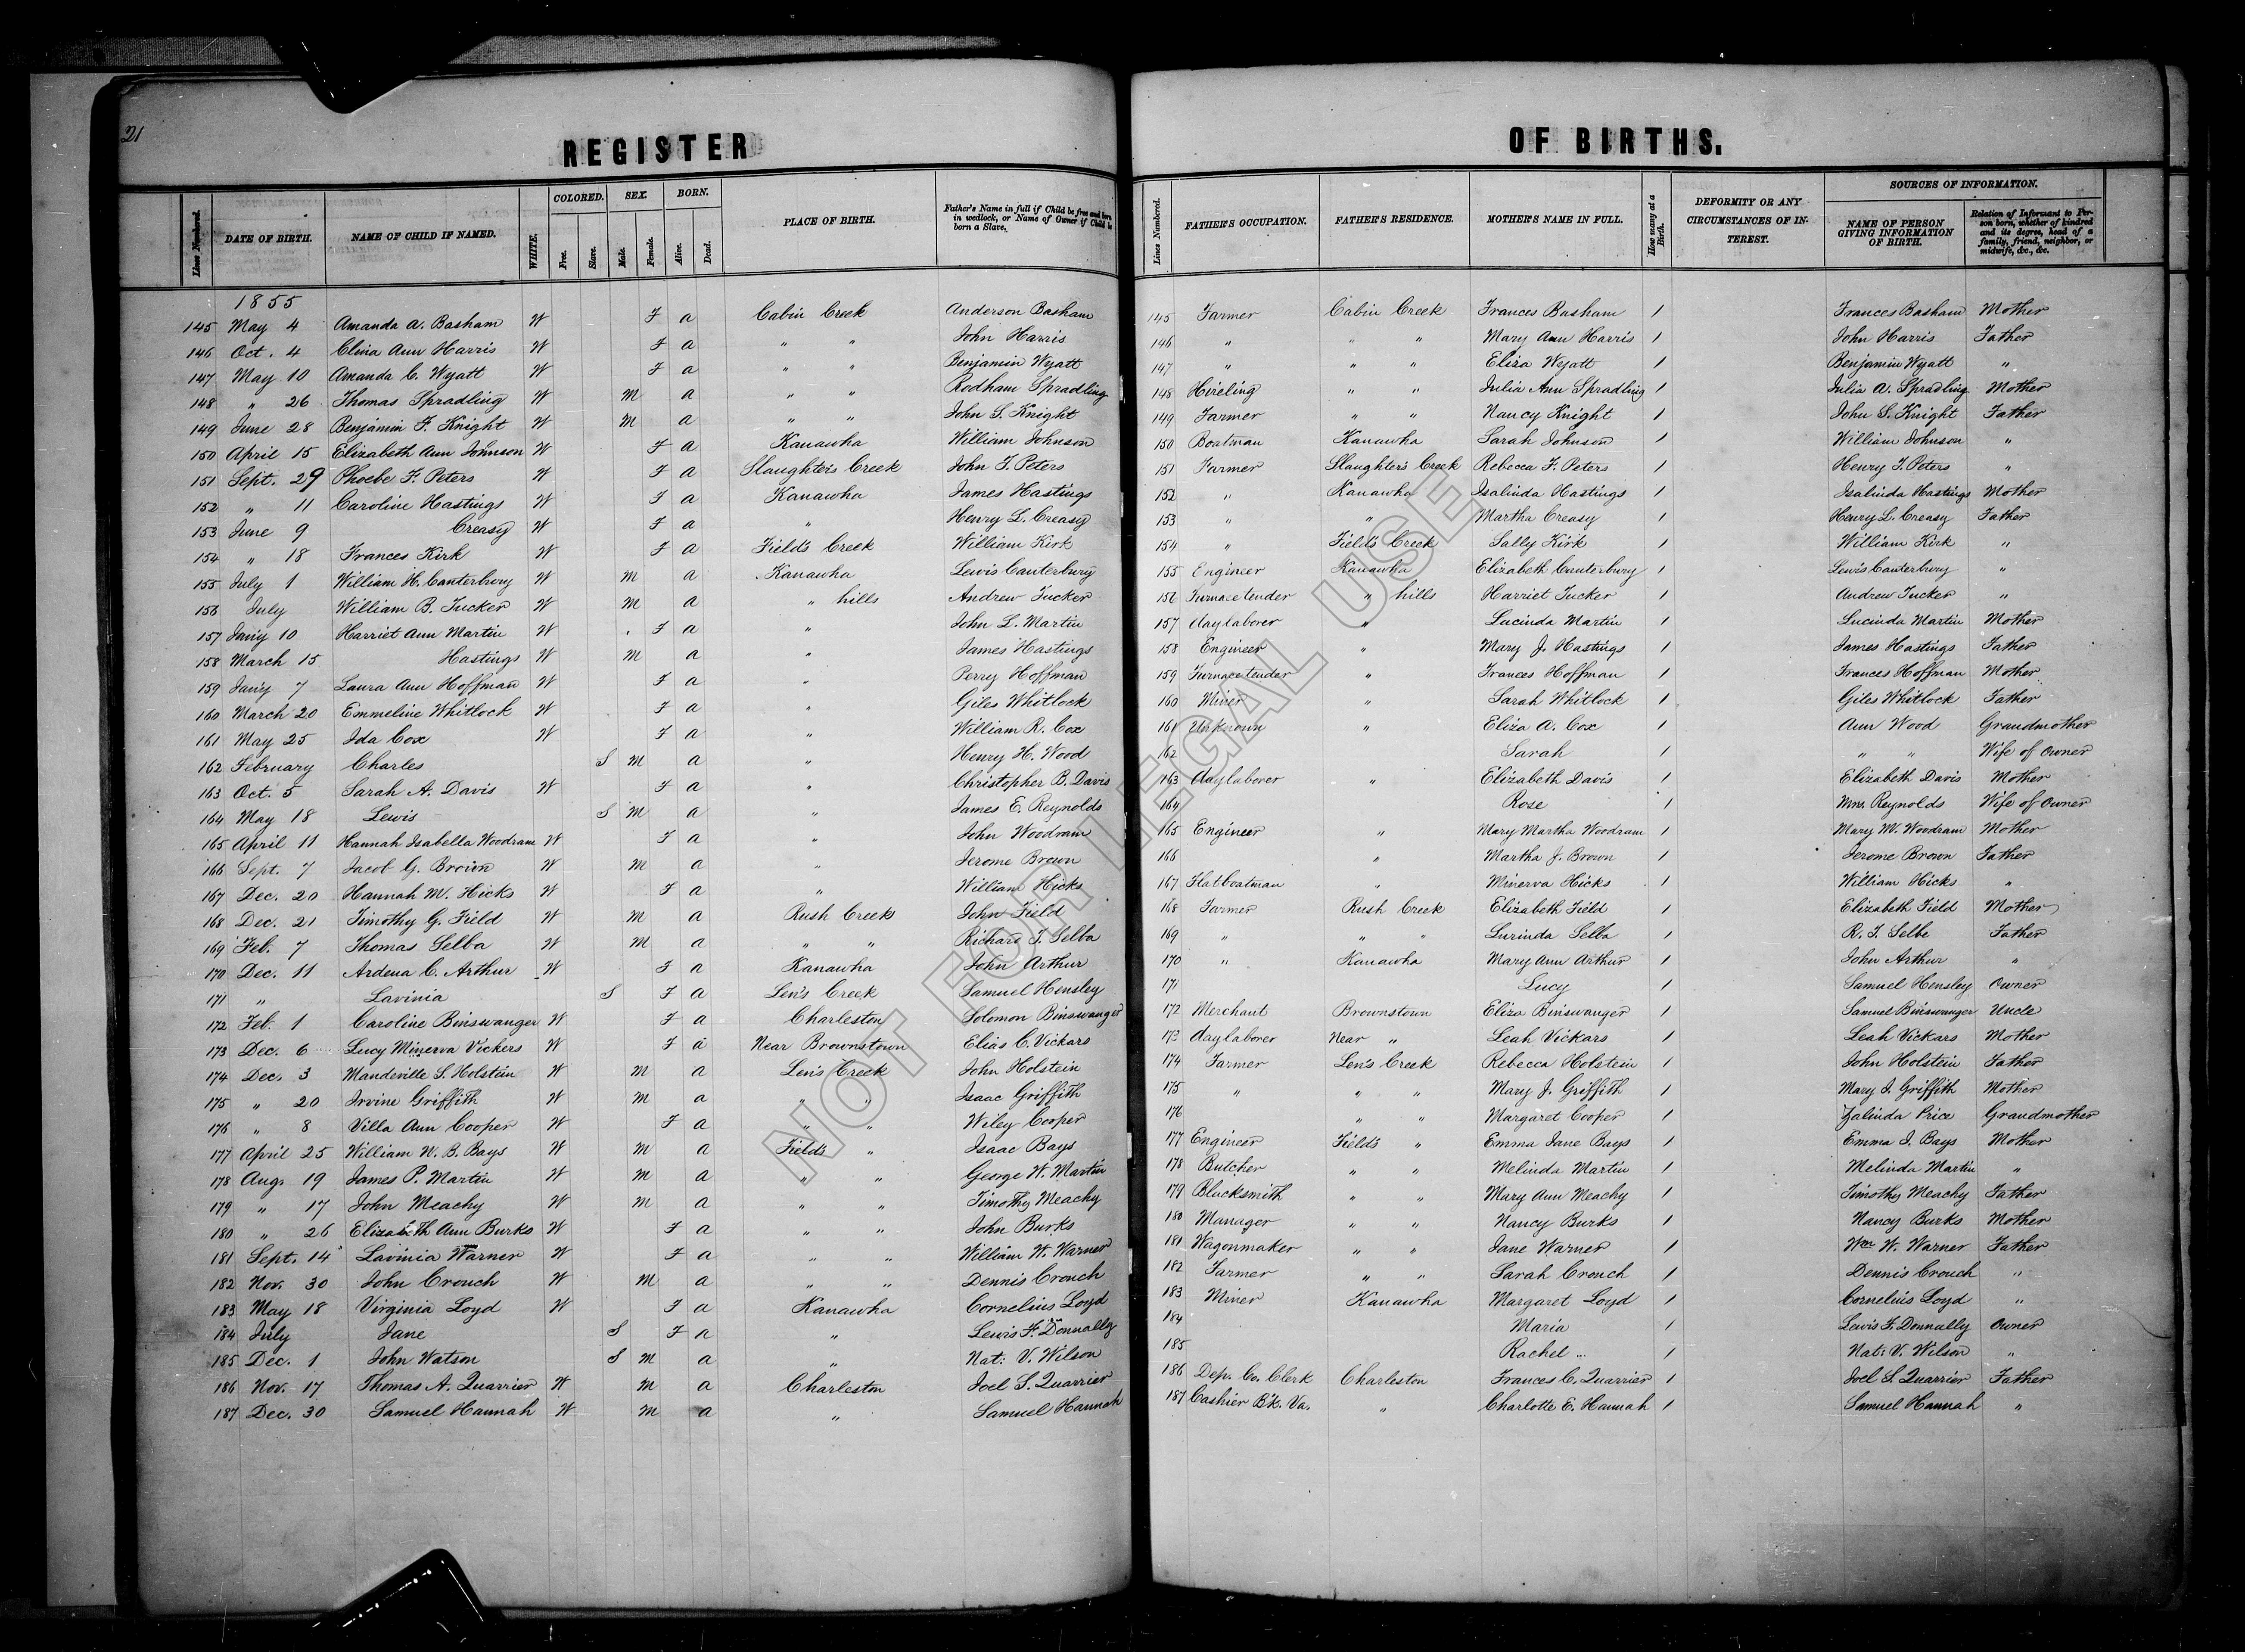 21
REGISTER OF BIRTHS.
Lines Numbered. DATE OF BIRTH. NAME OF CHILD IF NAMED. WHITE. COLORED. Free. Slave. SEX. Male. Female. BORN. Alive. Dead. PLACE OF BIRTH. Father's Name in full if Child be free and born in wedlock, or Name of Owner if Child be born a Slave. Lines Numbered. FATHER'S OCCUPATION. FATHER'S RESIDENCE. MOTHER'S NAME IN FULL. How many at a Birth. DEFORMITY OR ANY CIRCUMSTANCES OF INTEREST. SOURCES OF INFORMATION. NAME OF PERSON GIVING INFORMATION OF BIRTH. Relation of Informant to Person born, whether of kindred and its degree, head of a family, friend, neighbor, or midwife, &c., &c.
1855
145 May 4 Amanda A. Basham W F a Cabin Creek Anderson Basham 145 Farmer Cabin Creek Frances Basham 1 Frances Basham Mother
146 Oct. 4 Clina Ann Harris W F a " " John Harris 146 " " " Mary Ann Harris 1 John Harris Father
147 May 10 Amanda C. Wyatt W F a " " Benjamin Wyatt 147 " " " Eliza Wyatt 1 Benjamin Wyatt "
148 " 26 Thomas Spradling W M a " " Rodham Spradling 148 Hireling " " Julia Ann Spradling 1 Julia A. Spradling Mother
149 June 28 Benjamin F. Knight W M a " " John S. Knight 149 Farmer " " Nancy Knight 1 John S. Knight Father
150 April 15 Elizabeth Ann Johnson W F a Kanawha William Johnson 150 Boatman Kanawha Sarah Johnson 1 William Johnson "
151 Sept. 29 Phoebe F. Peters W F a Slaughter's Creek John F. Peters 151 Farmer Slaughter's Creek Rebecca F. Peters 1 Henry F. Peters "
152 " 11 Caroline Hastings W F a Kanawha James Hastings 152 " Kanawha Isalinda Hastings 1 Isalinda Hastings Mother
153 June 9 Creasy W F a " Henry L. Creasy 153 " " Martha Creasy 1 Henry L. Creasy Father
154 " 18 Frances Kirk W F a Field's Creek William Kirk 154 " Field's Creek Sally Kirk 1 William Kirk "
155 July 1 William H. Canterbury W M a Kanawha Lewis Canterbury 155 Engineer Kanawha Elizabeth Canterbury 1 Lewis Canterbury "
156 July William B. Tucker W M a " hills Andrew Tucker 156 Furnace tender " hills Harriet Tucker 1 Andrew Tucker "
157 Jan'y 10 Harriet Ann Martin W F a " John L. Martin 157 day laborer " Lucinda Martin 1 Lucinda Martin Mother
158 March 15 Hastings W M a " James Hastings 158 Engineer " Mary J. Hastings 1 James Hastings Father
159 Jan'y 7 Laura Ann Hoffman W F a " Perry Hoffman 159 Furnace tender " Frances Hoffman 1 Frances Hoffman Mother
160 March 20 Emmeline Whitlock W F a " Giles Whitlock 160 Miner " Sarah Whitlock 1 Giles Whitlock Father
161 May 25 Ida Cox W F a " William R. Cox 161 Unknown " Eliza A. Cox 1 Ann Wood Grandmother
162 February Charles S M a " Henry H. Wood 162 Sarah 1 " " Wife of owner
163 Oct. 5 Sarah A. Davis W F a " Christopher B. Davis 163 day laborer " Elizabeth Davis 1 Elizabeth Davis Mother
164 May 18 Lewis S M a " James E. Reynolds 164 Rose 1 Mrs. Reynolds Wife of owner
165 April 11 Hannah Isabella Woodram W F a " John Woodram 165 Engineer " Mary Martha Woodram 1 Mary M. Woodram Mother
166 Sept. 7 Jacob G. Brown W M a " Jerome Brown 166 " Martha J. Brown 1 Jerome Brown Father
167 Dec. 20 Hannah M. Hicks W F a " William Hicks 167 Flatboatman " Minerva Hicks 1 William Hicks "
168 Dec. 21 Timothy G. Field W M a Rush Creek John Field 168 Farmer Rush Creek Elizabeth Field 1 Elizabeth Field Mother
169 Feb. 7 Thomas Selba W M a " " Richard T. Selba 169 " " " Lurinda Selba 1 R. T. Selbe Father
170 Dec. 11 Ardena C. Arthur W F a Kanawha John Arthur 170 " Kanawha Mary Ann Arthur 1 John Arthur "
171 " Lavinia S F a Len's Creek Samuel Hensley 171 Lucy 1 Samuel Hensley Owner
172 Feb. 1 Caroline Binswanger W F a Charleston Solomon Binswanger 172 Merchant Brownstown Eliza Binswanger 1 Samuel Binswanger Uncle
173 Dec. 6 Lucy Minerva Vickers W F a Near Brownstown Elias C. Vickars 173 day laborer Near " Leah Vickars 1 Leah Vickars Mother
174 Dec. 3 Mandeville S. Holstein W M a Len's Creek John Holstein 174 Farmer Len's Creek Rebecca Holstein 1 John Holstein Father
175 " 20 Irvine Griffith W M a " " Isaac Griffith 175 " " " Mary J. Griffith 1 Mary J. Griffith Mother
176 " 8 Villa Ann Cooper W F a " " Wiley Cooper 176 " " Margaret Cooper 1 Zalinda Price Grandmother
177 April 25 William W. B. Bays W M a Field's " Isaac Bays 177 Engineer Field's " Emma Jane Bays 1 Emma J. Bays Mother
178 Aug. 19 James P. Martin W M a " " George W. Martin 178 Butcher " " Melinda Martin 1 Melinda Martin "
179 " 17 John Meachy W M a " " Timothy Meachy 179 Blacksmith " " Mary Ann Meachy 1 Timothy Meachy Father
180 " 26 Elizabeth Ann Burks W F a " " John Burks 180 Manager " " Nancy Burks 1 Nancy Burks Mother
181 Sept. 14 Lavinia Warner W F a " " William W. Warner 181 Wagonmaker " " Jane Warner 1 Wm W. Warner Father
182 Nov. 30 John Crouch W M a " " Dennis Crouch 182 Farmer " " Sarah Crouch 1 Dennis Crouch "
183 May 18 Virginia Loyd W F a Kanawha Cornelius Loyd 183 Miner Kanawha Margaret Loyd 1 Cornelius Loyd "
184 July Jane S F a " Lewis F. Donnally 184 Maria 1 Lewis F. Donnally Owner
185 Dec. 1 John Watson S M a " Nat: V. Wilson 185 Rachel 1 Nat: V. Wilson "
186 Nov. 17 Thomas A. Quarrier W M a Charleston Joel S. Quarrier 186 Dep. Co. Clerk Charleston Frances C. Quarrier 1 Joel S. Quarrier Father
187 Dec. 30 Samuel Hannah W M a " Samuel Hannah 187 Cashier Bk. Va. " Charlotte E. Hannah 1 Samuel Hannah "
NOT FOR LEGAL USE